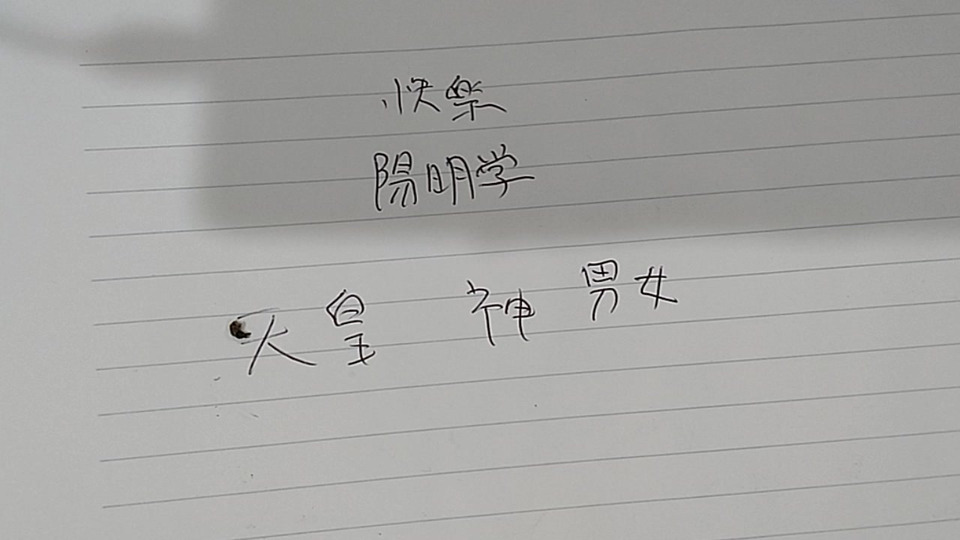 快楽
陽明学
天皇 神 男女